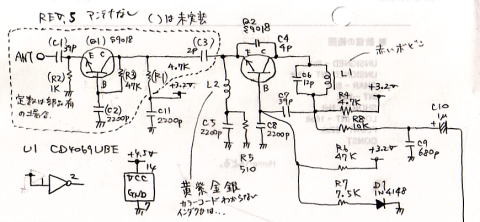 REV.5 アンテナなし ( )は未実装
ANT
(C1)
39p
(Q1) S9018
E C
B
(R2)
1K
(R3)
47K
(R1)
4.7K
(C3)
2p
+3.2V
(C2)
2200p
C11
2200p
定数は部品有
の場合.
Q2
S9018
C4
4p
E C
B
L2
C5
2200p
R5
510
C8
2200p
C7
39p
C6
12p
L1
赤いボビン
R4
4.7K
+3.2V
R8
10K
C10
1μ
C9
680p
R6
47K
+3.2V
R7
7.5K
D1
1N4148
U1 CD4069UBE
1
2
+4.5V
14
VCC
GND
7
黄紫金銀
カラーコードわからない
インダクタは...